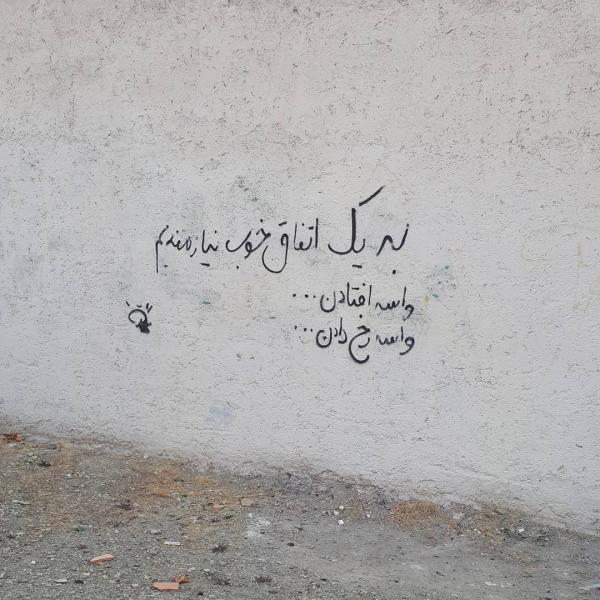 به یک اتفاق خوب نیازمندیم
واسه افتادن...
واسه رخ دادن...